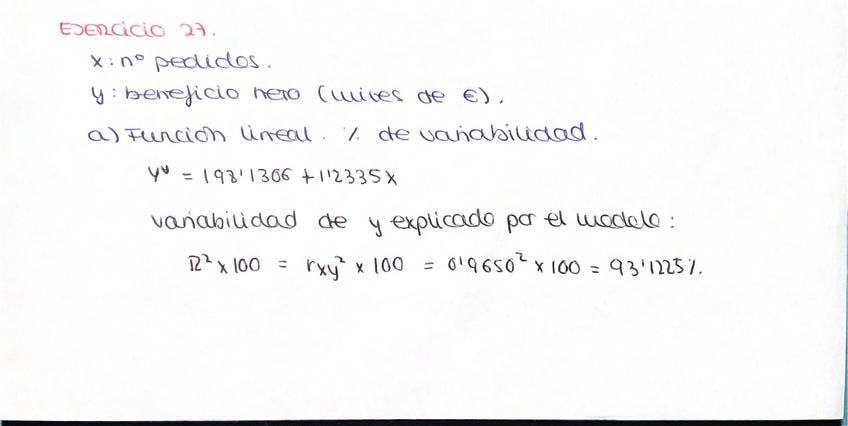 EJERCICIO 27.
x: nº pedidos.
y: beneficio neto (miles de €).
a) Función lineal. % de variabilidad.
y* = 193'1306 + 1'2335x
variabilidad de y explicado por el modelo:
R² x 100 = rxy² x 100 = 0'9650² x 100 = 93'1225%.